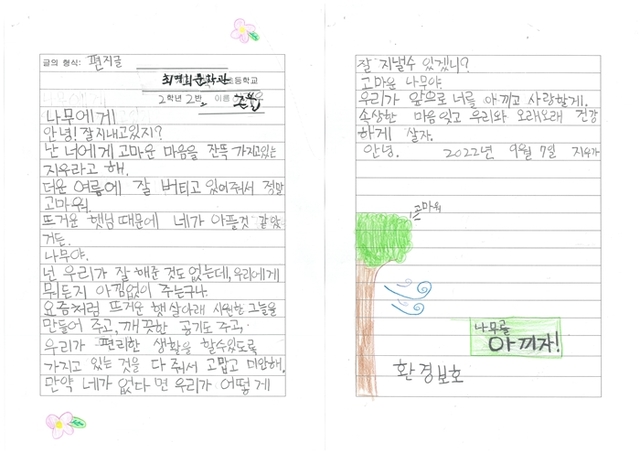 글의 형식: 편지글
최명희문학관 초등학교
2학년 2반 이름
나무에게
안녕! 잘지내고있지?
난 너에게 고마운 마음을 잔뜩 가지고있는
지우라고 해.
더운 여름에 잘 버티고 있어줘서 정말
고마워.
뜨거운 햇님 때문에 네가 아플것 같았
거든.
나무야.
넌 우리가 잘해준 것도 없는데, 우리에게
뭐든지 아낌없이 주는구나.
요즘처럼 뜨거운 햇살아래 시원한 그늘을
만들어 주고, 깨끗한 공기도 주고.
우리가 편리한 생활을 할수있도록
가지고 있는 것을 다 줘서 고맙고 미안해.
만약 네가 없다 면 우리가 어떻게
잘 지낼수 있겠니?
고마운 나무야.
우리가 앞으로 너를 아끼고 사랑할게.
속상한 마음잊고 우리와 오래오래 건강
하게 살자.
안녕. 2022년 9월 7일 지우가
고마워
나무를
아끼자!
환경보호